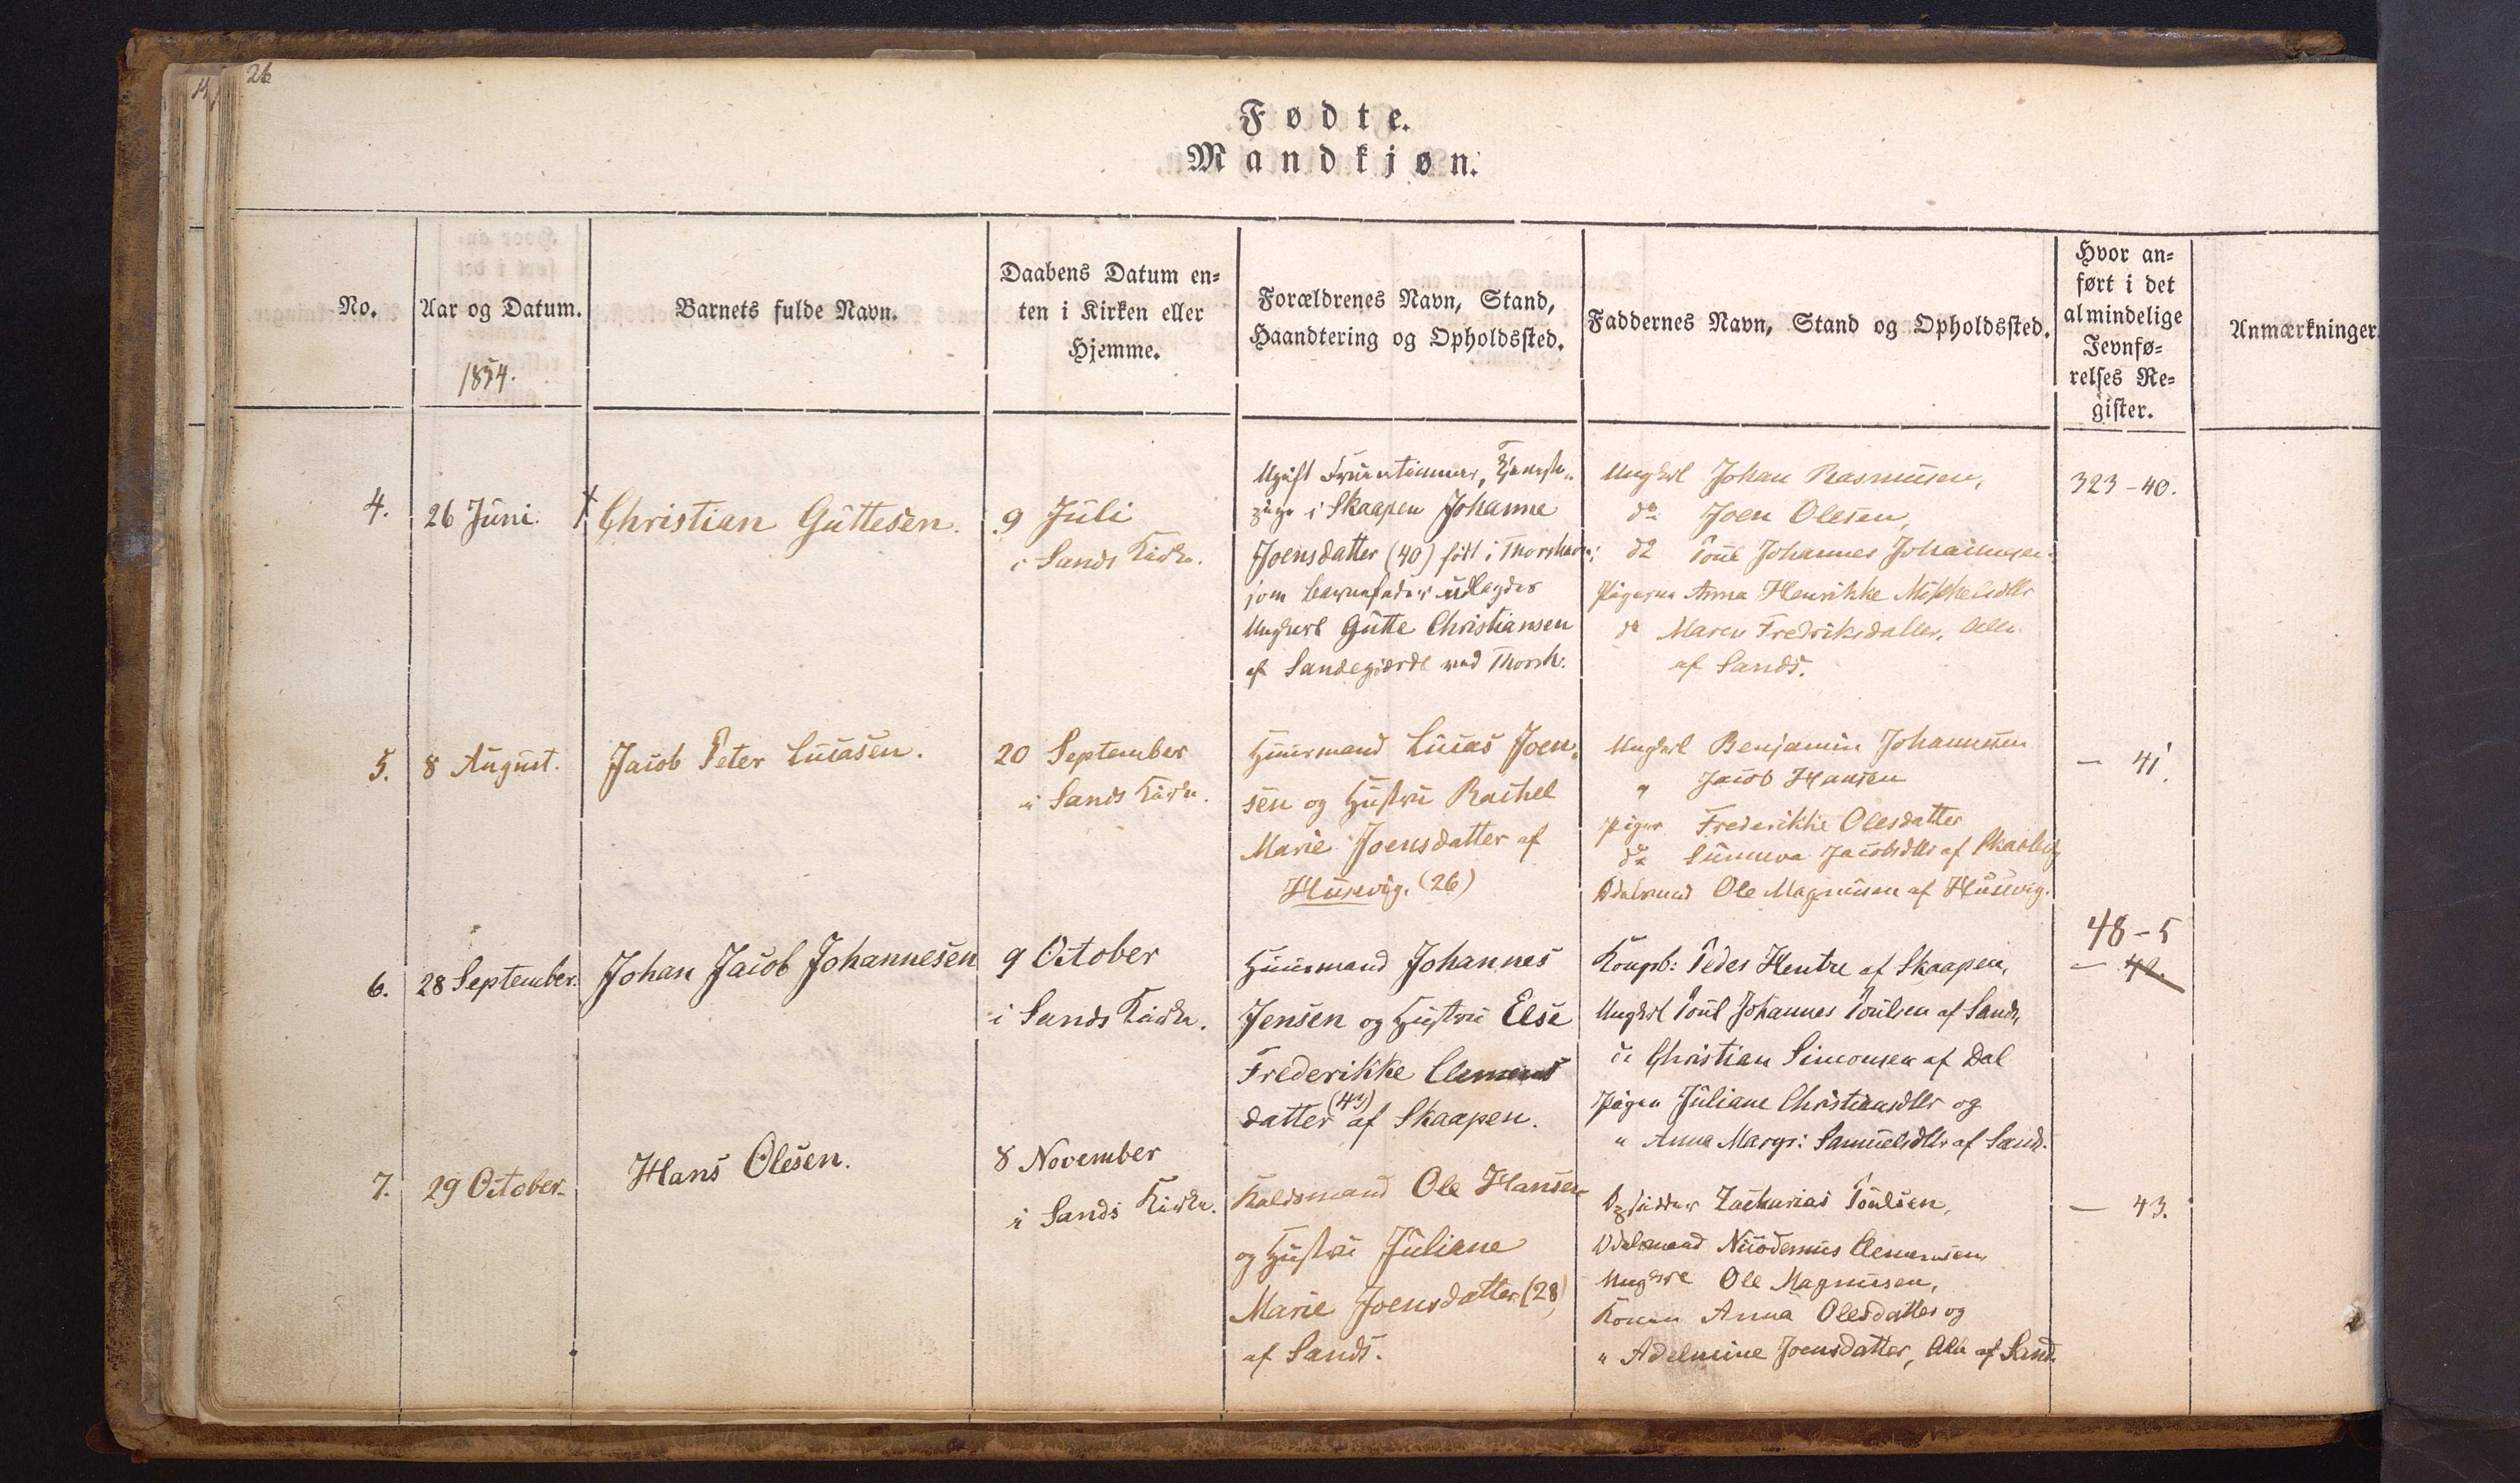 26
Fødte.
Mandkjøn.
No.
Aar og Datum.
1854.
Barnets fulde Navn.
Daabens Datum en=
ten i Kirken eller
Hjemme.
Forældrenes Navn, Stand,
Haandtering og Opholdssted.
Faddernes Navn, Stand og Opholdssted.
Hvor an=
ført i det
almindelige
Jevnfø=
relses Re=
gister.
Anmærkninger.
4.
26 Juni.
Christian Guttesen.
9 Juli
i Sands Kirke.
Ugift Fruentimmer, Tjeneste=
pige i Skaapen Johanne
Joensdatter (40) født i Thorshavn;
som Barnefader udlagdes
Ungkarl Gutte Christiansen
af Sandegjærde ved Thorsh:
Ungkarl Johan Rasmusen,
do Joen Olesen,
do Poul Johannes Johannesen
Pigerne Anna Henrikke Mikkelsdtr
do Maren Fredriksdatter, Alle
af Sands.
323-40.
5.
8 August.
Jacob Peter Lucasen.
20 September
i Sands Kirke.
Huusmand Lucas Joen=
sen og Hustru Rachel
Marie Joensdatter af
Husevig. (26)
Ungkarl Benjamin Johannesen
" Jacob Hansen
Piger Frederikke Olesdatter
do Sunneva Jacobsdtr af
Odelsmand Ole Magnusen af Husevig.
— 41.
6.
28 September.
Johan Jacob Johannesen
9 October
i Sands Kirke.
Huusmand Johannes
Jensen og Hustru Else
Frederikke Clemens
datter (43) af Skaapen.
Kongsb: Peder Hentze af Skaapen,
Ungkarl Poul Johannes Poulsen af Sand,
do Christian Simonsen af Dal
Pigen Juliane Christiansdtr og
" Anna Margr: Samuelsdtr af Sand.
48-5
— 42.
7.
29 October.
Hans Olesen.
8 November
i Sands Kirke.
Ole Hansen
og Hustru Juliane
Marie Joensdatter (28)
af Sands.
Opsidder Zacharias Poulsen,
Odelsmand Nicodemus Clemensen,
Ungkarl Ole Magnusen,
Konen Anna Olesdatter og
" Adelmine Joensdatter, Alle af Sand.
— 43.